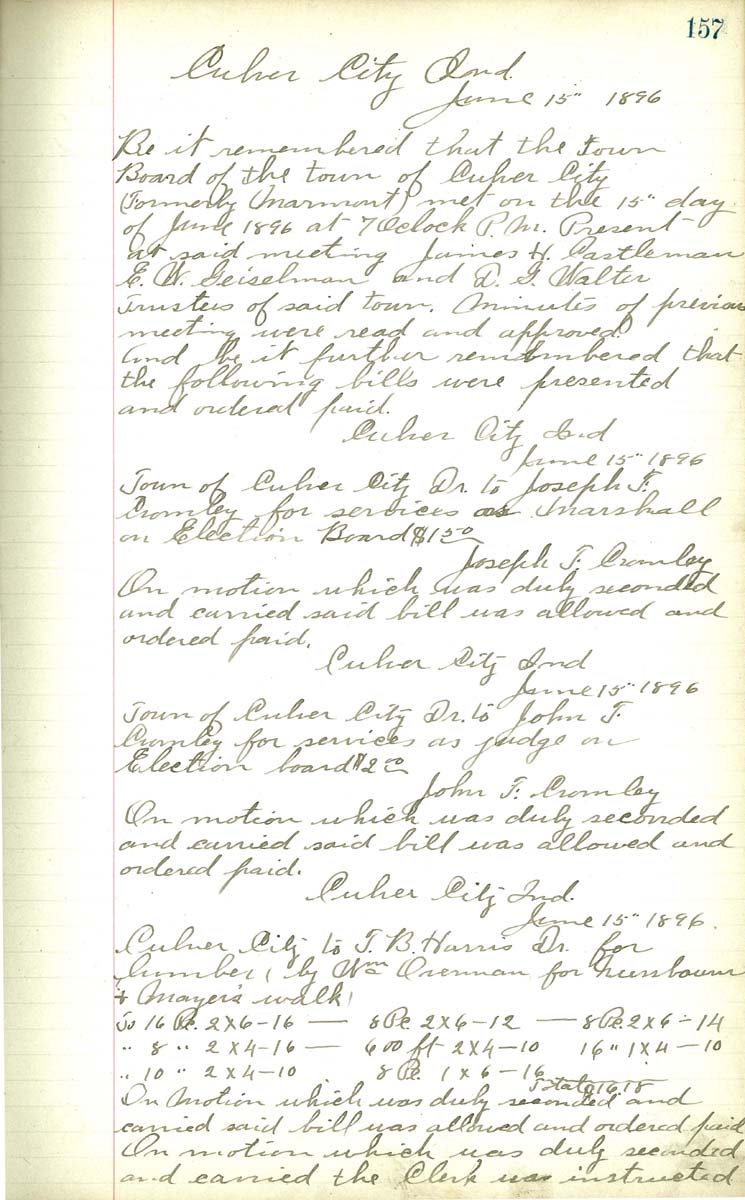 157
Culver City Ind.
June 15" 1896
Be it remembered that the Town
Board of the town of Culver City
(Formerly Marmont) met on the 15" day
of June 1896 at 7 Oclock P. M. Present
at said meeting James H. Castleman
E. W. Geiselman and D. G. Walter
Trustees of said town. Minutes of previous
meeting were read and approved.
And be it further remembered that
the following bills were presented
and ordered paid.
Culver City Ind
June 15" 1896
Town of Culver City Dr. to Joseph F.
Cromley for services as Marshall
on Election Board $1 50
Joseph F. Cromley
On motion which was duly seconded
and carried said bill was allowed and
ordered paid.
Culver City Ind
June 15" 1896
Town of Culver City Dr. to John F.
Cromley for services as judge on
Election board $2 00
John F. Cromley
On motion which was duly seconded
and carried said bill was allowed and
ordered paid.
Culver City Ind.
June 15" 1896.
Culver City to T. B. Harris Dr. for
lumber, by Wm for
& Mayer's walk
To 16 Pc. 2X6-16 — 8 Pc. 2X6-12 — 8 Pc. 2X6-14
" 8 " 2X4-16 — 600 ft 2X4-10 16" 1X4-10
" 10 " 2X4-10 8 Pc. 1X6-16
Total
On Motion which was duly seconded and
carried said bill was allowed and ordered paid
On motion which was duly seconded
and carried the Clerk was instructed